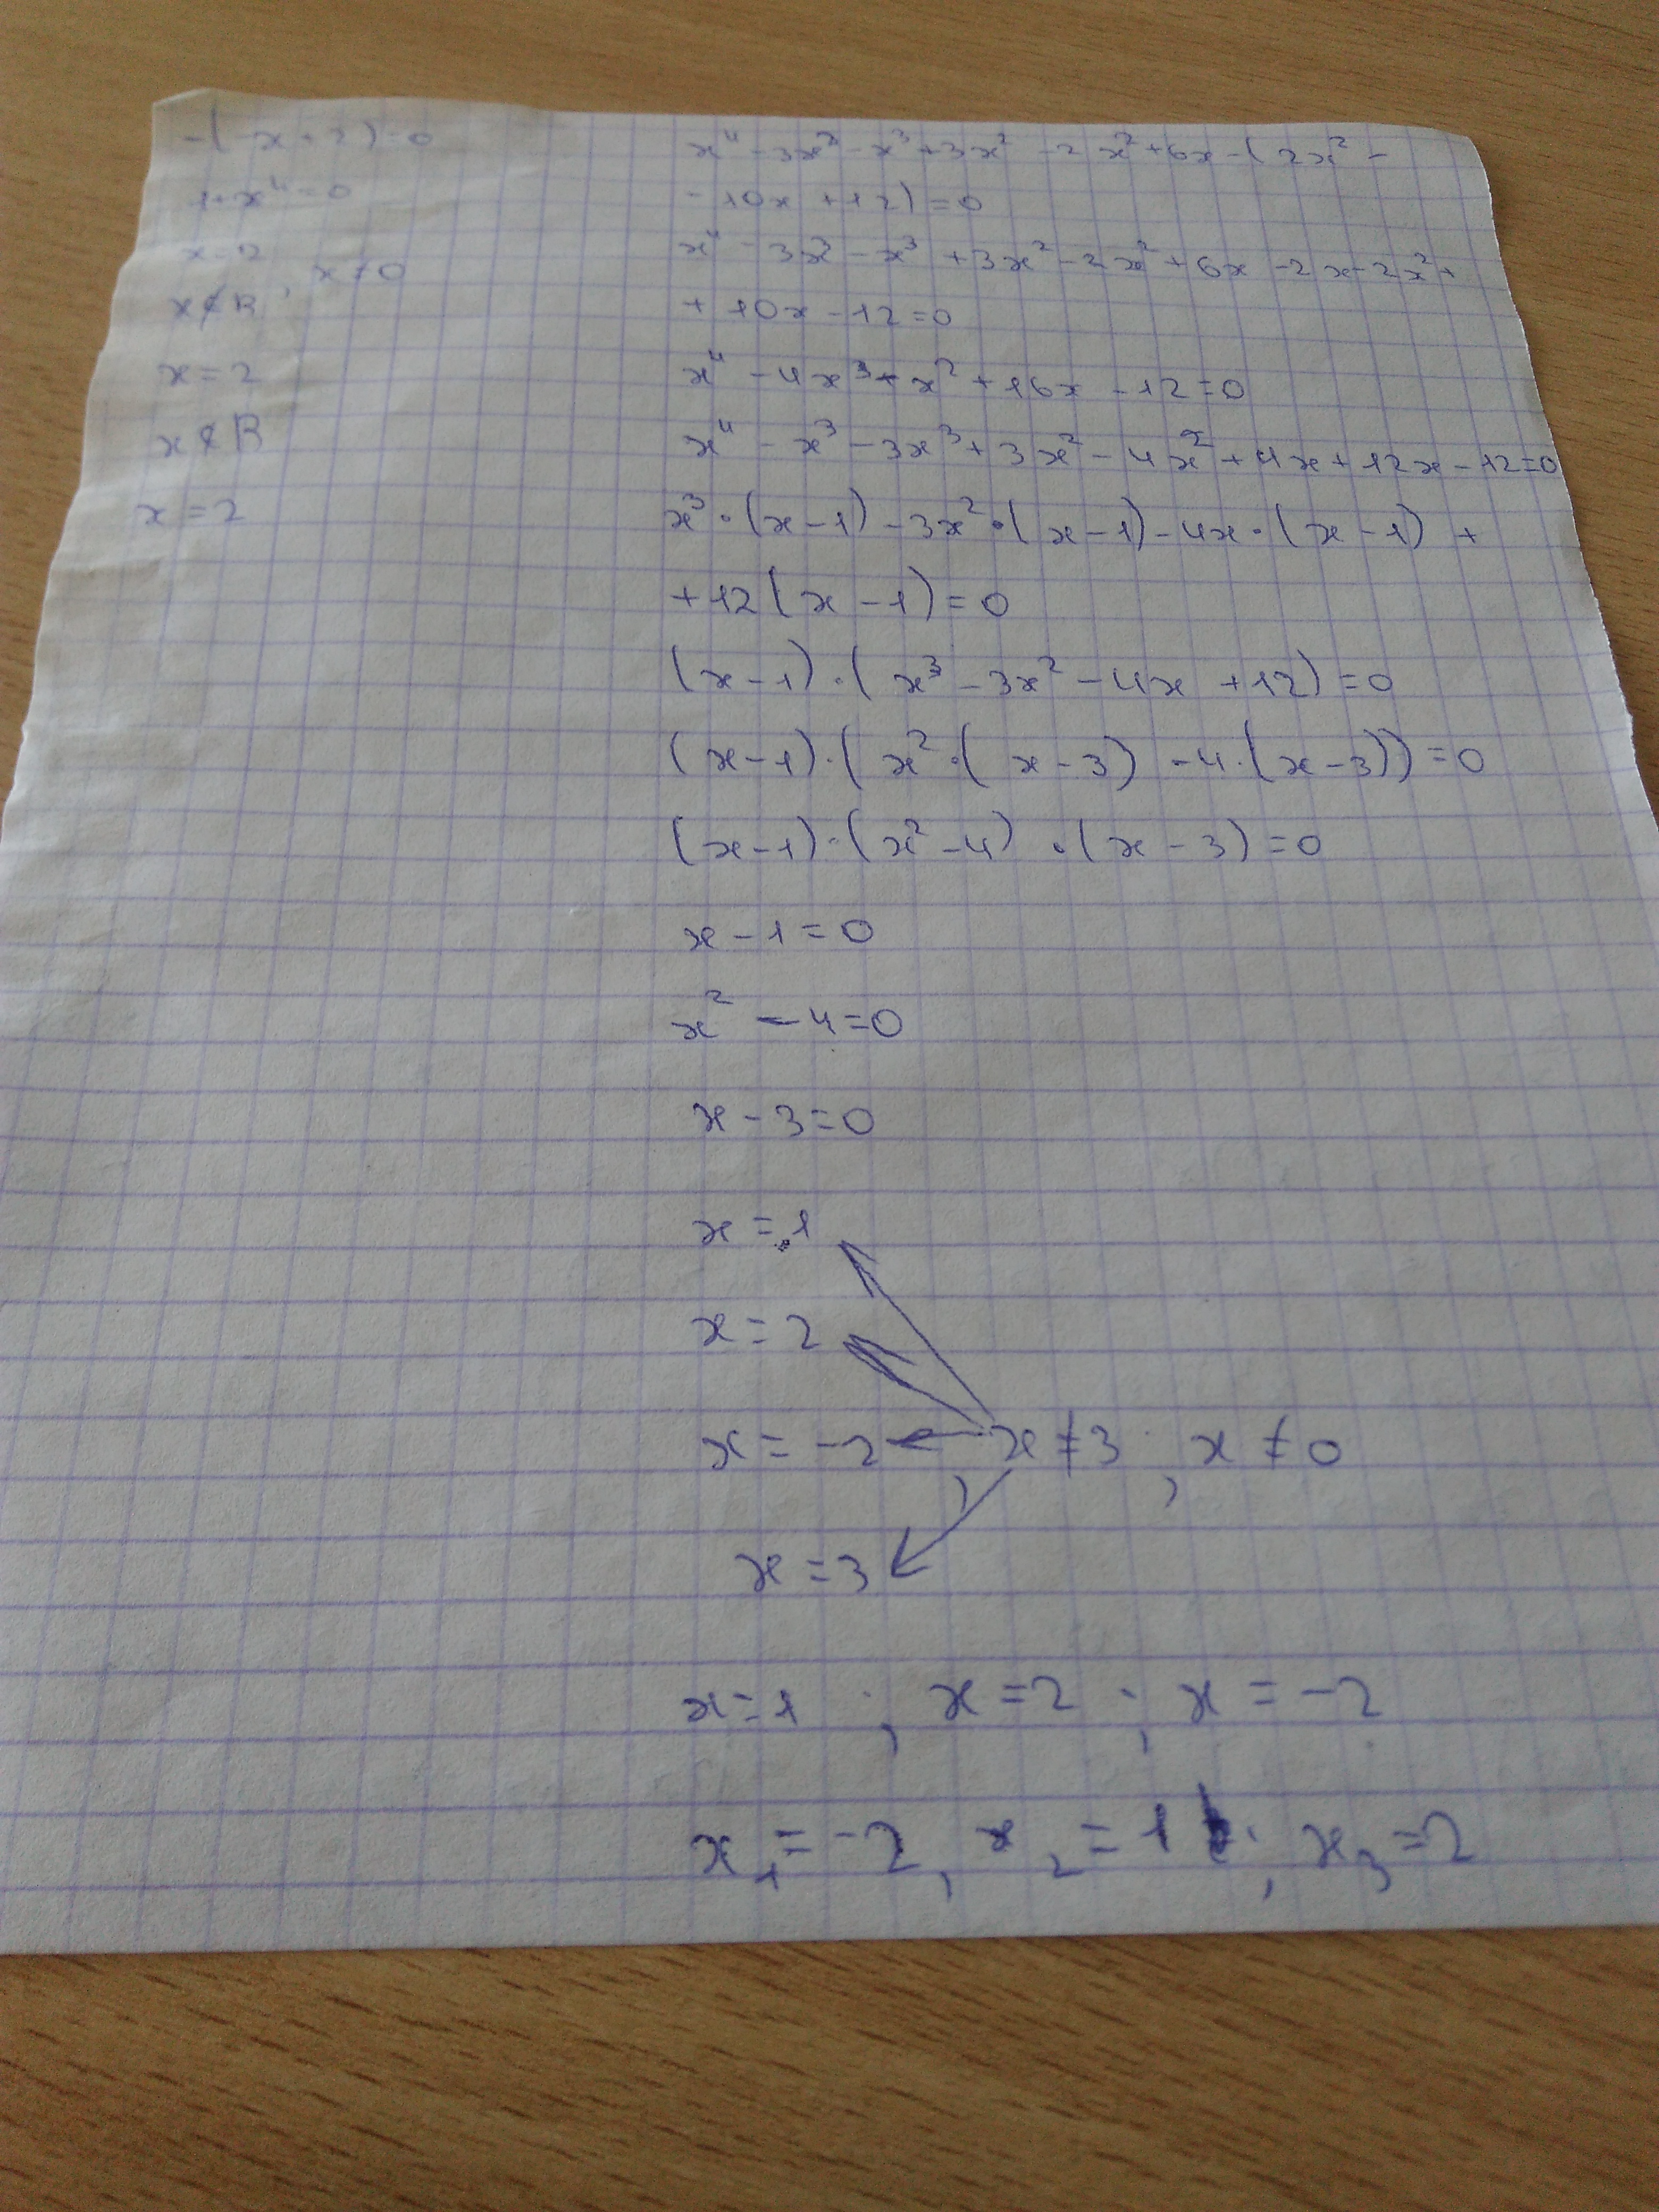 -(-x+2)=0
1+x⁴=0
x=2
x∉R, x≠0
x=2
x∉R
x=2
x⁴-3x³-x³+3x²-2x²+6x-(2x²-
-10x+12)=0
x⁴-3x³-x³+3x²-2x²+6x-2x-2x²+
+10x-12=0
x⁴-4x³-x²+16x-12=0
x⁴-x³-3x³+3x²-4x²+4x+12x-12=0
x³·(x-1)-3x²·(x-1)-4x·(x-1)+
+12(x-1)=0
(x-1)·(x³-3x²-4x+12)=0
(x-1)·(x²·(x-3)-4·(x-3))=0
(x-1)·(x²-4)·(x-3)=0
x-1=0
x²-4=0
x-3=0
x=1
x=2
x=-2 , x≠3, x≠0
x=3
x=1 ; x=2 ; x=-2
x₁=-2, x₂=1 ; x₃=2